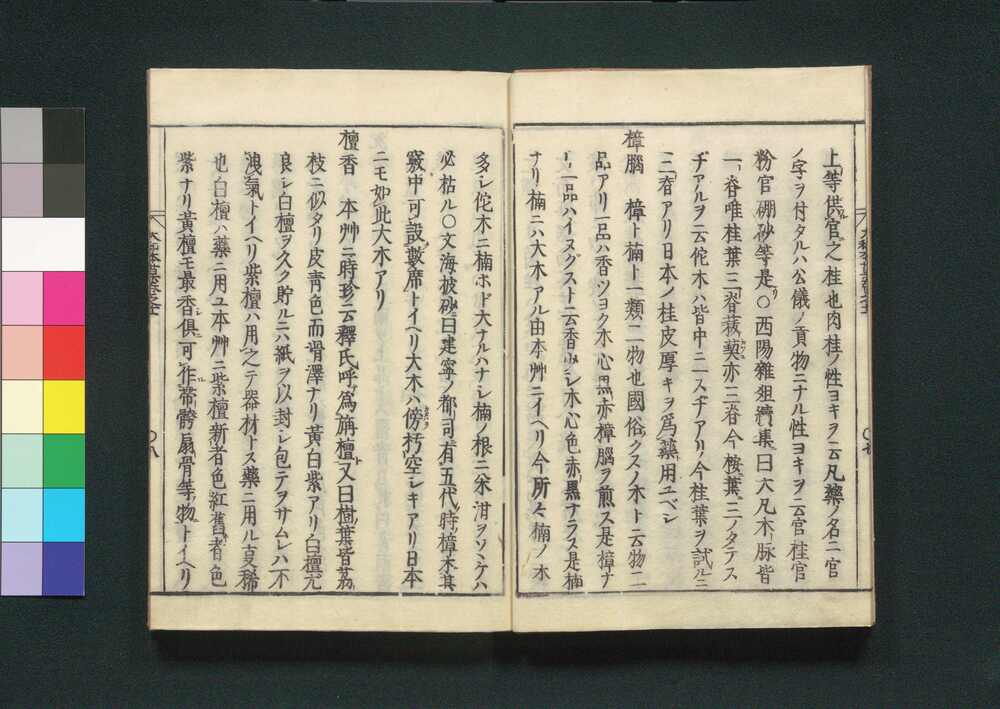 上等供官之桂也肉桂ノ性ヨキヲ云凡藥ノ名ニ官
ノ字ヲ付タルハ公儀ノ貢物ニナル性ヨキヲ云官桂官
粉官硼砂等是ナリ○酉陽雜俎續集曰大凡木ノ脉皆
一脊唯桂葉三脊菝葜亦三脊今桉葉三ノタテス
ヂアルヲ云佗木ハ皆中ニ一スヂアリ今桂葉ヲ試ルニ
三脊アリ日本ノ桂皮厚キヲ爲藥用ユベシ
樟腦 樟ト楠ト一類二物也國俗クスノ木ト云物二
品アリ一品ハ香ツヨク木心黒赤樟腦ヲ煎ス是樟ナ
リ一品ハイヌグストニ云香少シ木心色赤黒ナラス是楠
ナリ楠ニハ大木アル由本艸ニイヘリ今所々楠ノ木
大和本草卷之十二
○七
多シ佗木ニ楠ホド大ナルハナシ楠ノ根ニ氽泔ヲソソケハ
必枯ル○文海披砂曰建寧ノ都司有五代ノ時樟木其
竅中可設數席トイヘリ大木ハ傍朽空シキアリ日本
ニモ如此大木アリ
檀香 本艸ニ時珍云釋氏呼爲旃檀又曰樹葉皆荔
枝ニ似タリ皮青色而滑澤ナリ黃白紫アリ白檀尤
良シ白檀ヲ久ク貯ルニハ紙ヲ以封シ包テヲサムレハ不
洩氣トイヘリ紫檀ハ用之テ器材トス藥ニ用ル叓稀
也白檀ハ藥ニ用ユ本艸ニ紫檀新者色紅舊者色
紫ナリ黃檀モ最香俱可作帶骻扇骨等物トイヘリ
大和本草卷之十二
○八